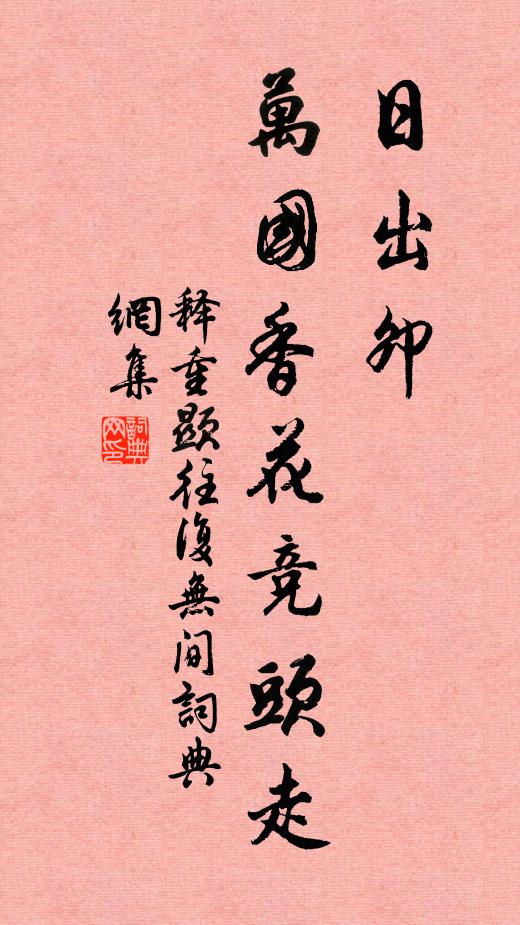 日出卯
萬國香花竞頭走
释重顯往復無间詞典
網集
詞典
网印